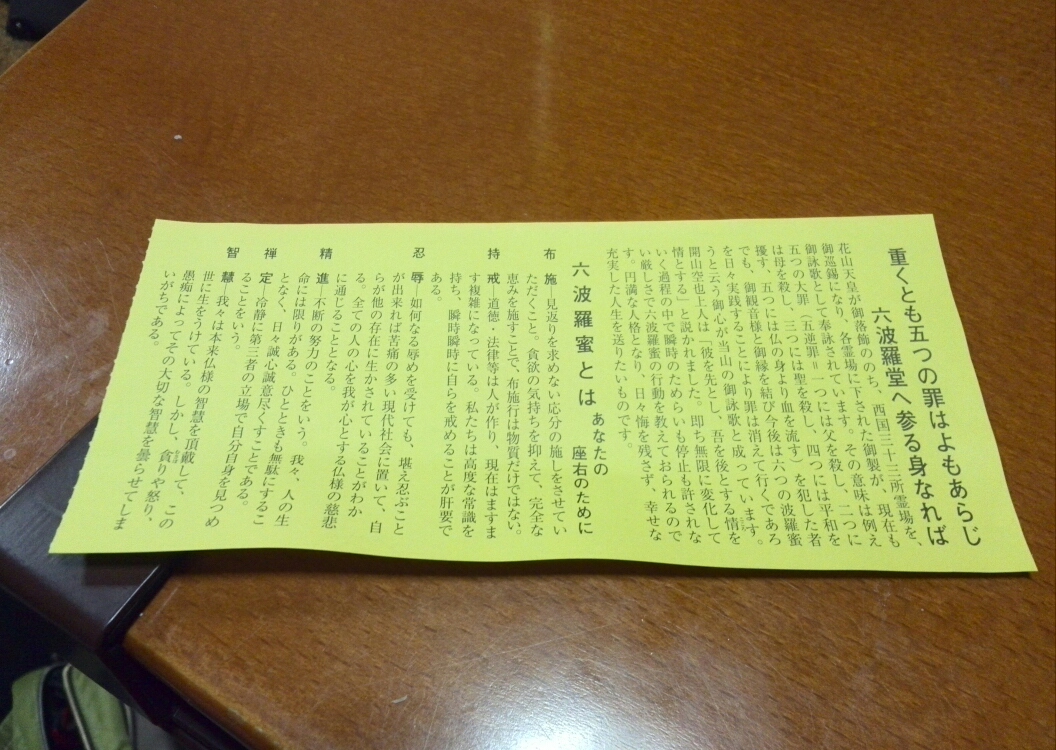 重くとも五つの罪はよもあらじ
六波羅堂へ参る身なれば
花山天皇が御落飾ののち、西国三十三所霊場を、
御巡錫になり、各霊場に下された御製が、現在も
御詠歌として奉詠されています。その意味は例え
五つの大罪（五逆罪＝一つには父を殺し、二つに
は母を殺し、三つには聖を殺し、四つには平和を
擾す、五つには仏の身より血を流す）を犯した者
でも、御観音様と御縁を結び今後は六つの波羅蜜
を日々実践することにより罪は消えて行くであろ
うと云う御心が当山の御詠歌と成っています。
開山空也上人は「彼を先とし、吾を後とする情を
情とする」と説かれました。即ち無限に変化して
いく過程の中で瞬時のためらいも停止も許されな
い厳しさで六波羅蜜の行動を教えておられるので
す。円満な人格となり、日々悔を残さず、幸せな
充実した人生を送りたいものです。
六波羅蜜とは あなたの座右のために
布施―見返りを求めない応分の施しをさせてい
ただくこと。貪欲の気持ちを抑えて、完全な
恵みを施すことで、布施行は物質だけではない。
持戒―道徳・法律等は人が作り、現在はますま
す複雑になっている。私たちは高度な常識を
持ち、瞬時瞬時に自らを戒めることが肝要で
ある。
忍辱―如何なる辱めを受けても、堪え忍ぶこと
が出来れば苦痛の多い現代社会に置いて、自
らが他の存在に生かされていることがわか
る。全ての人の心を我が心とする仏様の慈悲
に通じることとなる。
精進―不断の努力のことをいう。我々、人の生
命には限りがある。ひとときも無駄にするこ
となく、日々誠心誠意尽くすことである。
禅定―冷静に第三者の立場で自分自身を見つめ
ることをいう。
智慧―我々は本来仏様の智慧を頂戴して、この
世に生をうけている。しかし、貪りや怒り、
愚痴によってその大切な智慧を曇らせてしま
いがちである。